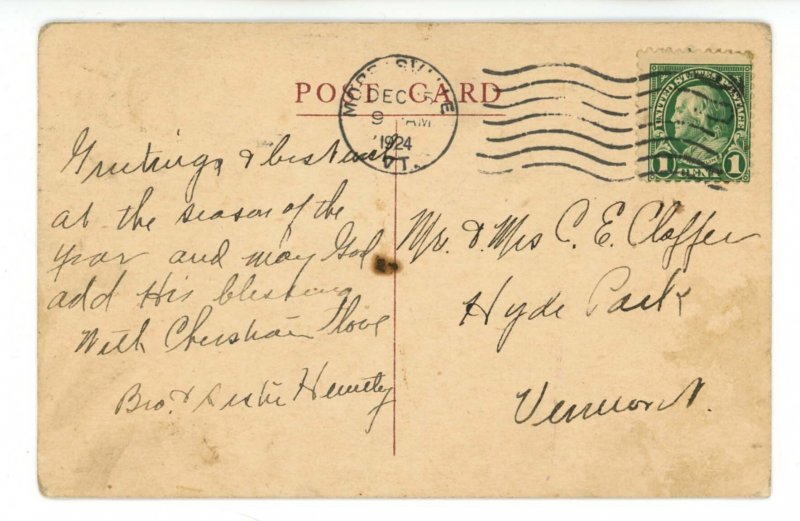 POST CARD
MORRISVILLE
DEC
9 AM
1924
VT.
UNITED STATES POSTAGE
1 CENT 1
Greetings & best
at the season of the
year and may God
add His blessing
With Christian love
Bro. & Sister
Mr. & Mrs C. E.
Hyde Park
Vermont.